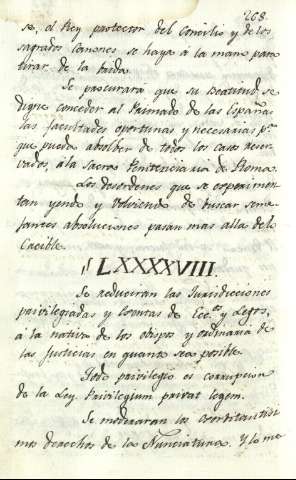 208.
se, el Rey protector del Concilio y de los
sagrados Canones se haya á la mano para
tirar de la
Se procurará que su Beatitud se
digne conceder al Primado de las Españas
las facultades oportunas y necesarias p.ª
que pueda absolber de todos los casos reser-
vados, á la Sacra Penitenciaria de Roma.
Los desordenes que se experimen-
tan yendo y volviendo de buscar seme-
jantes absoluciones pasan mas alla de lo
Creible.
LXXXXVIII.
Se reduciran las Jurisdicciones
privilegiadas y esentas de Ecc.cos y Legos,
á la nativa de los obispos y ordinaria de
las Justicias en quanto sea posible.
Todo privilegio es corrupcion
de la Ley. Privilegium privat legem.
Se moderaran los exorbitantisi-
mos derechos de la Nunciatura. Y lo me